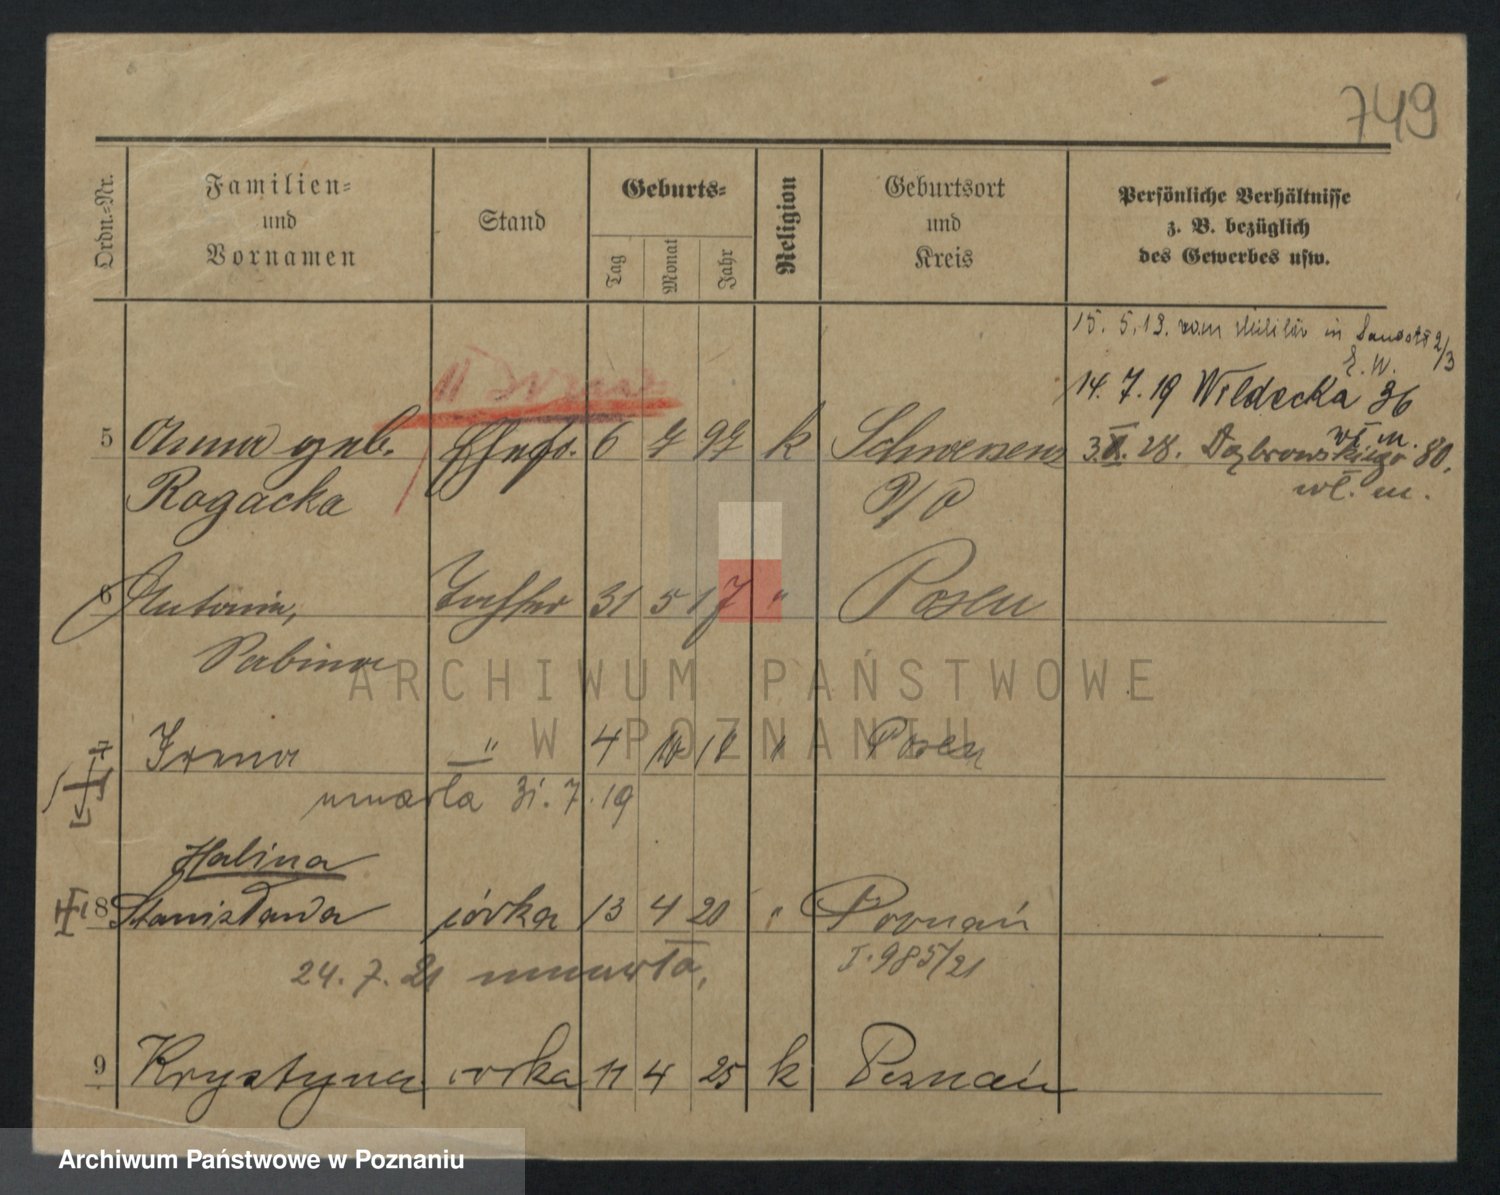 749
Ordn.=Nr.
Familien=
und
Vornamen
Stand
Geburts=
Tag
Monat
Jahr
Religion
Geburtsort
und
Kreis
Persönliche Verhältnisse
z. B. bezüglich
des Gewerbes usw.
15. 5. 19. vom Militär in 2/3
E. W.
14. 7. 19 Wildecka 36
wł. m.
5 Anna geb. Ehefr. 6 7 97 k Schwersenz 28. Dąbrowskiego 80,
Rogacka P/O wł. m.
6 Antonie, Tochter 31 5 17 " Posen
Sabina
ARCHIWUM PAŃSTWOWE
W POZNANIU
7 Irma " 4 10 18 " Posen
umarła 31. 7. 19
Halina
8 Stanisława córka 13 4 20 " Poznań
24. 7. 21 umarła, I. 985/21
9 Krystyna córka 11 4 25 k Poznań
Archiwum Państwowe w Poznaniu